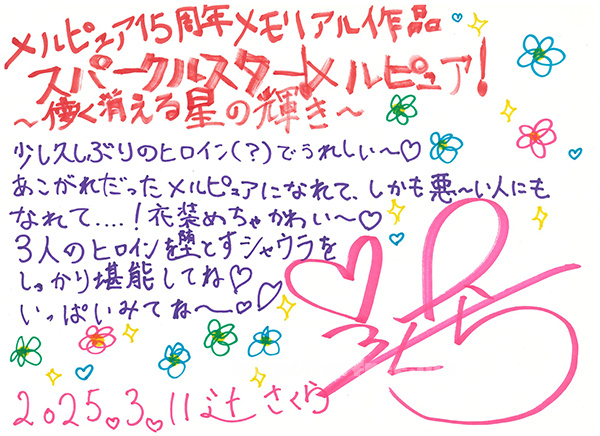 メルピュア15周年メモリアル作品
スパークルスター!メルピュア!
~儚く消える星の輝き~
少し久しぶりのヒロイン(?)でうれしい~♡
あこがれだったメルピュアになれて、しかも悪~い人にも
なれて....!衣装めちゃかわい~♡
3人のヒロインを堕とすシャウラを
しっかり堪能してね♡
いっぱいみてね~♡♡
2025.3.11 辻さくら